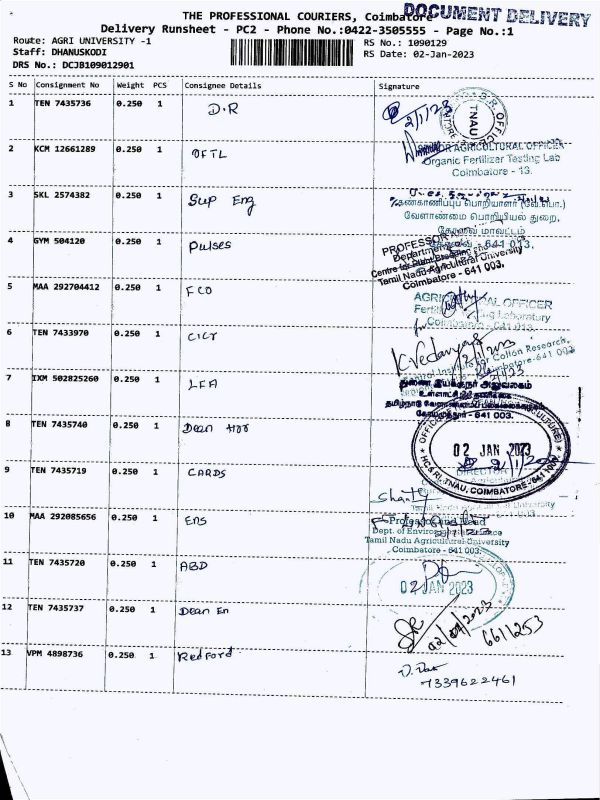 THE PROFESSIONAL COURIERS, Coimbatore
DOCUMENT DELIVERY
Delivery Runsheet - PC2 - Phone No.:0422-3505555 - Page No.:1
Route: AGRI UNIVERSITY -1
RS No.: 1090129
Staff: DHANUSKODI
RS Date: 02-Jan-2023
DRS No.: DCJB109012901
S No Consignment No Weight PCS Consignee Details Signature
1 TEN 7435736 0.250 1 D.R
2/1/23
TNAU
2 KCM 12661289 0.250 1 OFTL
AGRICULTURAL OFFICER
Organic Fertilizer Testing Lab
Coimbatore - 13.
3 SKL 2574382 0.250 1 Sup Eng
கண்காணிப்புப் பொறியாளர் (வே.பொ.)
வேளாண்மை பொறியியல் துறை,
கோவை மாவட்டம்
கோவை - 641 013.
4 GYM 504120 0.250 1 Pulses
PROFESSOR
Department
Centre for Plant Breeding and
Tamil Nadu Agricultural University
Coimbatore - 641 003.
5 MAA 292704412 0.250 1 FCO
AGRICULTURAL OFFICER
Laboratory
Coimbatore - 641 013
6 TEN 7433970 0.250 1 CICR
Central Institute for Cotton Research,
Coimbatore-641 003
7 IXM 502825260 0.250 1 LFA
துணை இயக்குநர் அலுவலகம்
உள்ளாட்சி நிதி தணிக்கை
தமிழ்நாடு வேளாண்மைப் பல்கலைக்கழகம்
கோயமுத்தூர் - 641 003.
8 TEN 7435740 0.250 1 Dean Hor
02 JAN 2023
HC & RI, TNAU, COIMBATORE - 641 003
9 TEN 7435719 0.250 1 CARDS
DIRECTOR
Shanty
10 MAA 292085656 0.250 1 ENS
Professor and Head
Dept. of Environmental Science
Tamil Nadu Agricultural University
Coimbatore - 641 003.
11 TEN 7435720 0.250 1 ABD
02 JAN 2023
12 TEN 7435737 0.250 1 Dean En
02/01/2023
6611253
13 VPM 4898736 0.250 1 Redford
7339622461